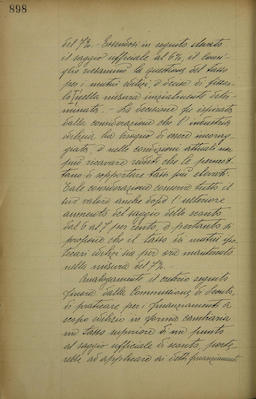 898
del 7%. Essendosi in seguito elevato
il saggio ufficiale al 6%, il Consi-
glio riesaminò la questione del tasso
per i mutui edilizi, e decise di
nella misura inizialmente deter-
minata. - La decisione fu ispirata
dalla considerazione che l'industria
edilizia ha bisogno di essere incorag-
giata, e nelle condizioni attuali non
può ricavare redditi che le permet-
tano di sopportare tassi più elevati.
Tale considerazione conserva tutto il
suo valore anche dopo l'ulteriore
aumento del saggio dello sconto
dal 6 al 7 per cento, e pertanto si
propone che il tasso sui mutui
edilizi sia per ora mantenuto
nella misura del 7%.
Analogamente il criterio seguito
finora dalla Commissione di Sconto,
di praticare per i finanziamenti a
scopo edilizio in forma cambiaria
un tasso superiore di un punto
al saggio ufficiale di sconto, porte-
rebbe ad applicare ai detti finanziamenti